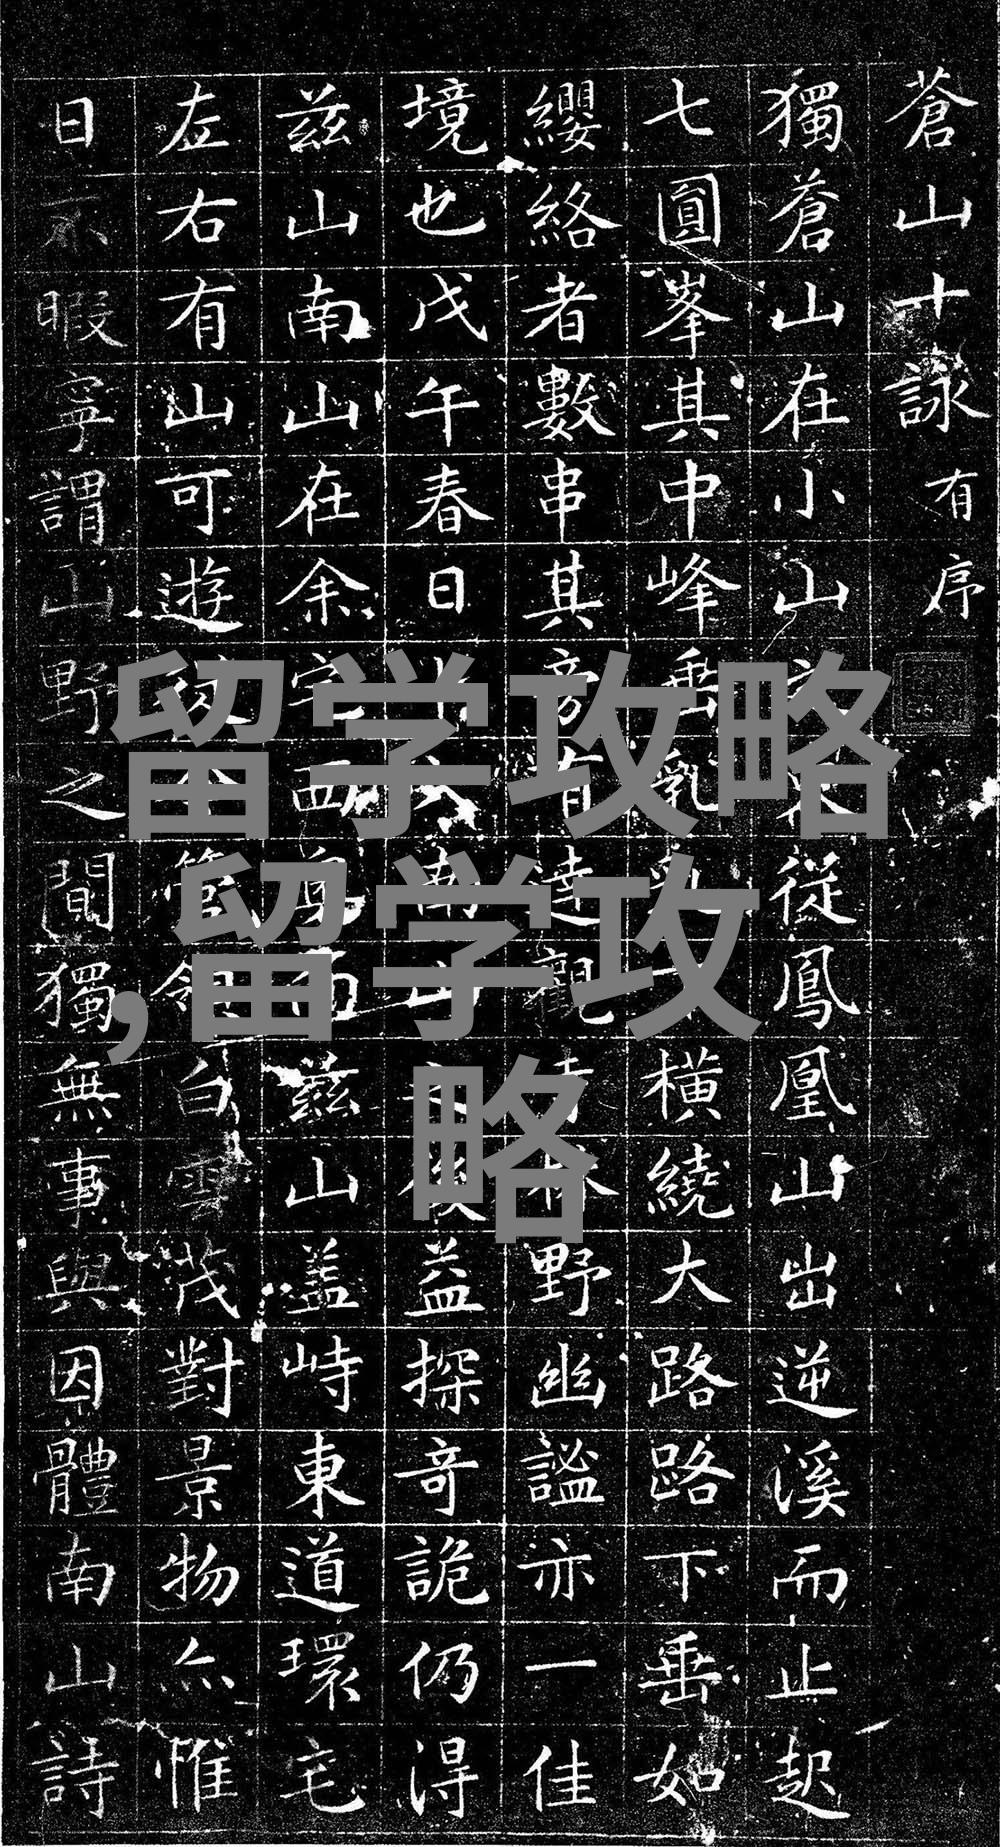 蒼山十詠 有序
獨蒼山在小山從鳳凰山出逆溪而止起
七圓峯其中峰垂乳橫繞大路路下垂如
纓絡者數串其旁有達觀林野幽謐亦一佳
境也戊午春日南山益探奇詭仍得
茲山南山在余宅西而茲山蓋峙東道環宅
左右有山可遊管領白雲茂對景物亦惟
日不暇寧謂山野之間獨無事與因體南山詩
留学攻略
,留学攻
略